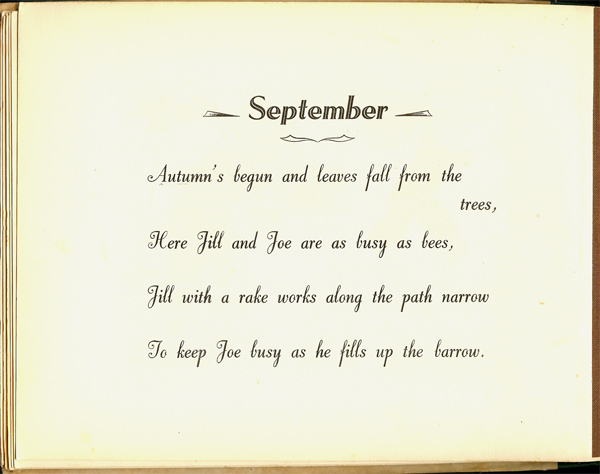 September
Autumn's begun and leaves fall from the
trees,
Here Jill and Joe are as busy as bees,
Jill with a rake works along the path narrow
To keep Joe busy as he fills up the barrow.